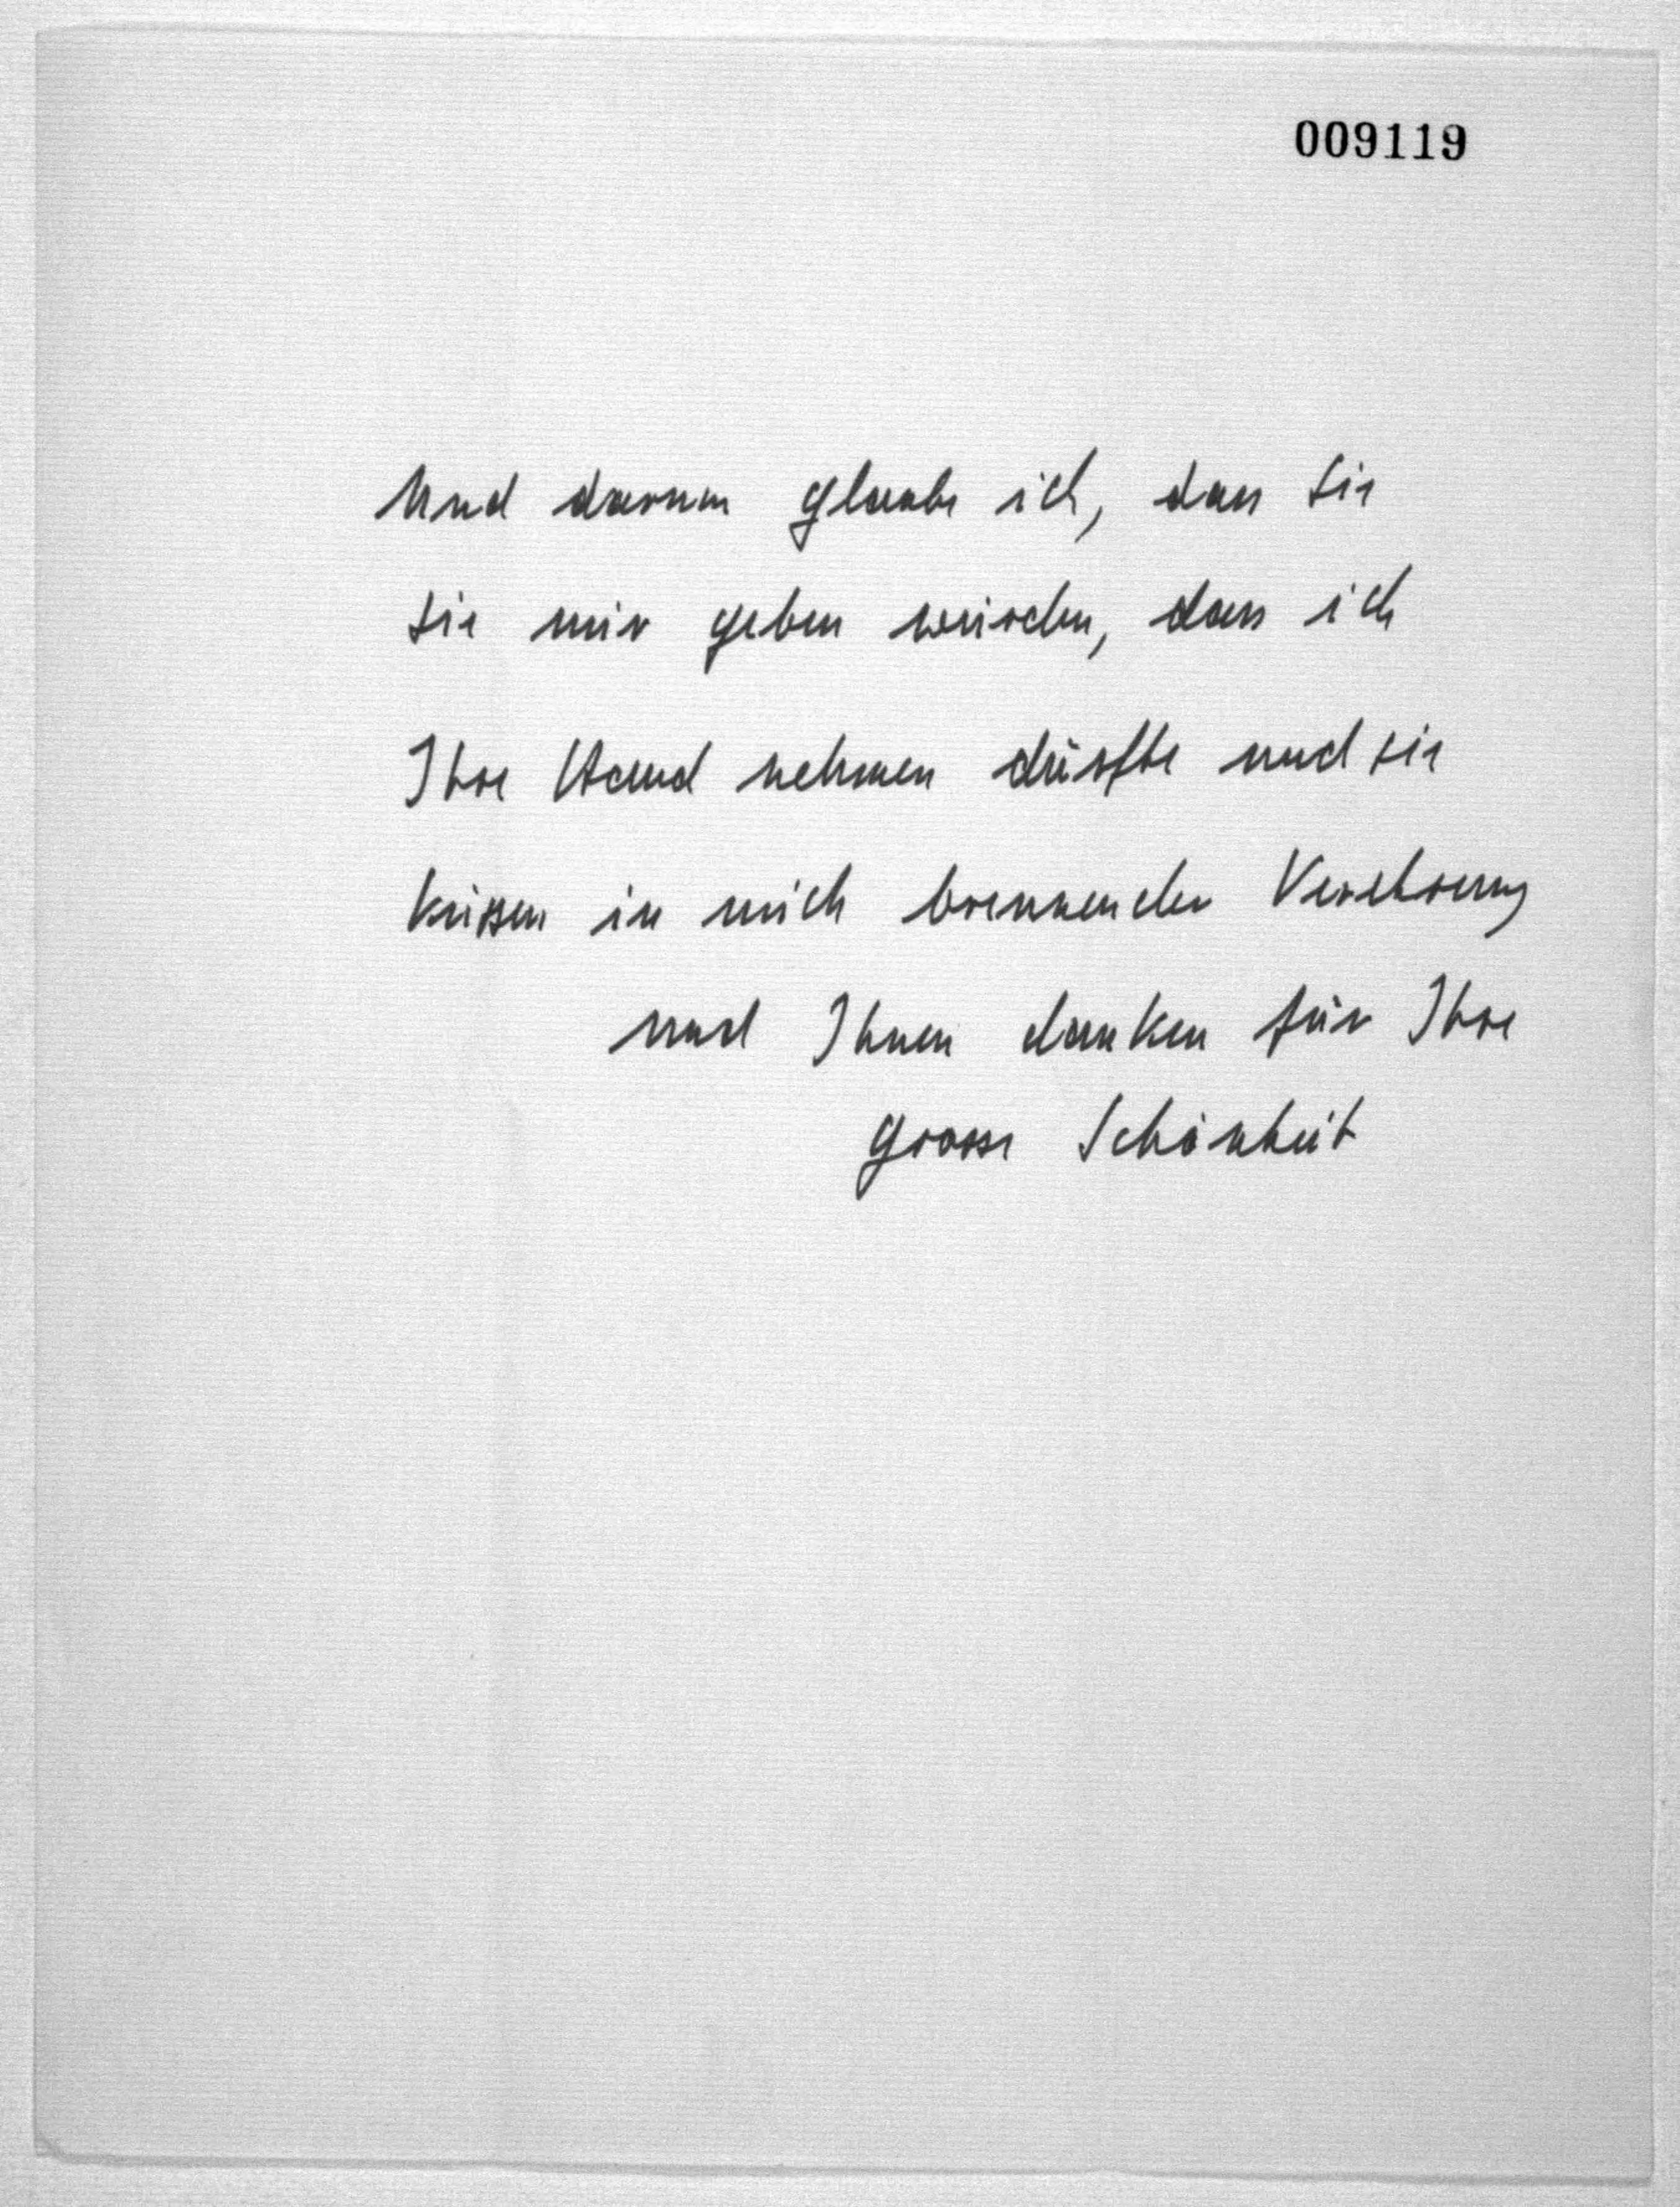 009119
Und darum glaube ich, dass Sie
sie mir geben würden, dass ich
Ihre Hand nehmen dürfte und sie
küssen in mich brennender Verehrung
und Ihnen danken für Ihre
grosse Schönheit